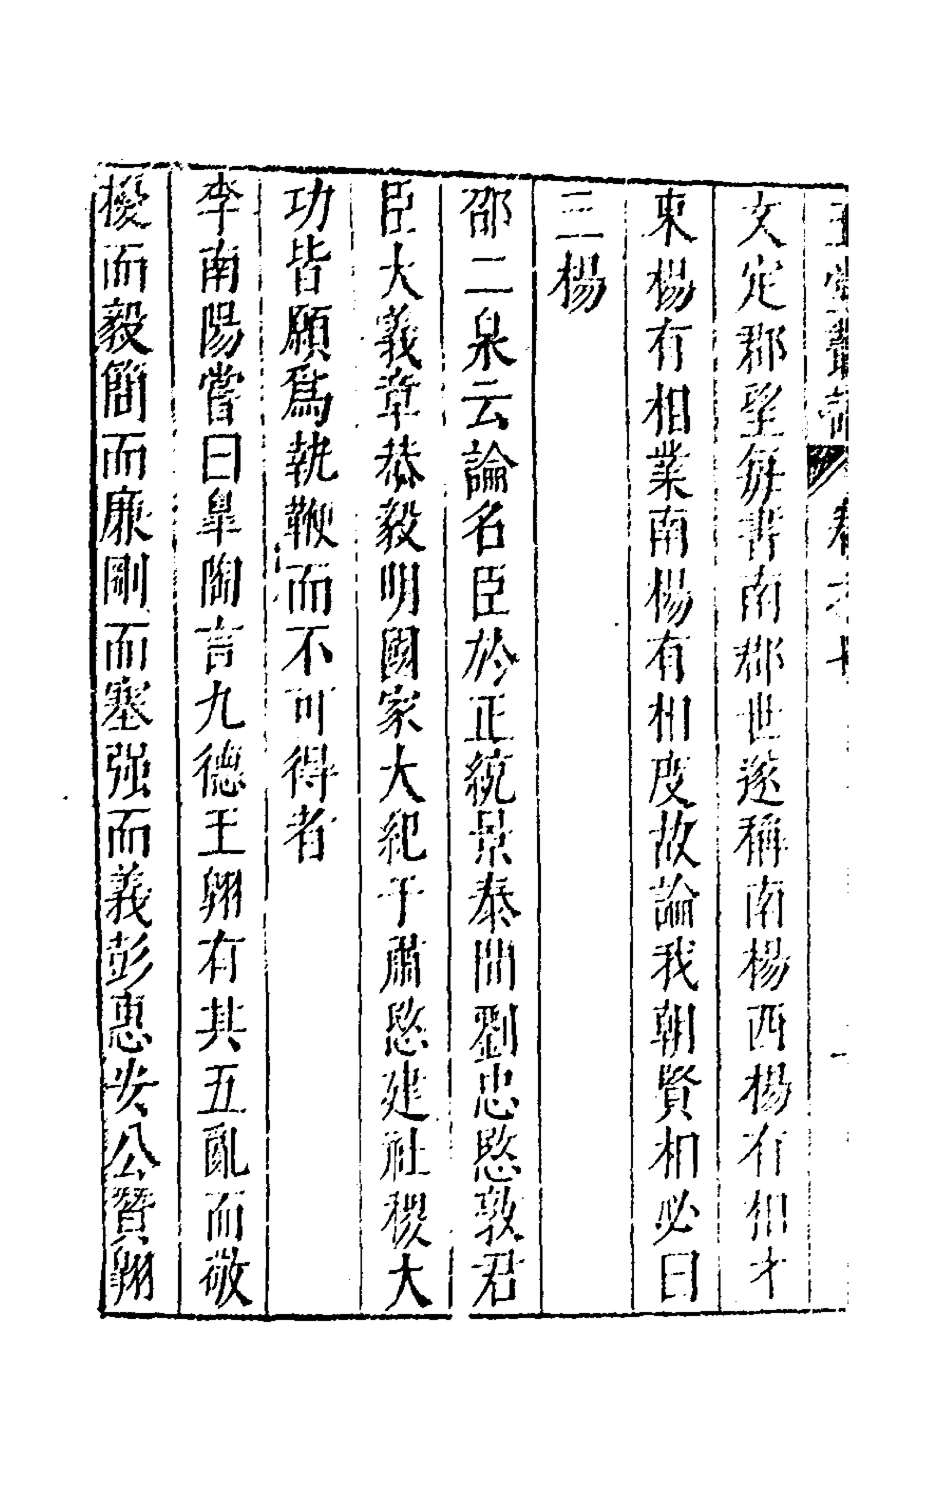 玉堂叢語 卷之七
文定郡望每書南郡世遂稱南楊西楊有相才
東楊有相業南楊有相度故論我朝賢相必曰
三楊
邵二泉云論名臣於正統景泰間劉忠愍敦君
臣大義章恭毅明國家大紀于肅愍建社稷大
功皆願爲執鞭而不可得者
李南陽嘗曰臯陶言九德王翱有其五亂而敬
擾而毅簡而廉剛而塞强而義彭惠安公贊翱